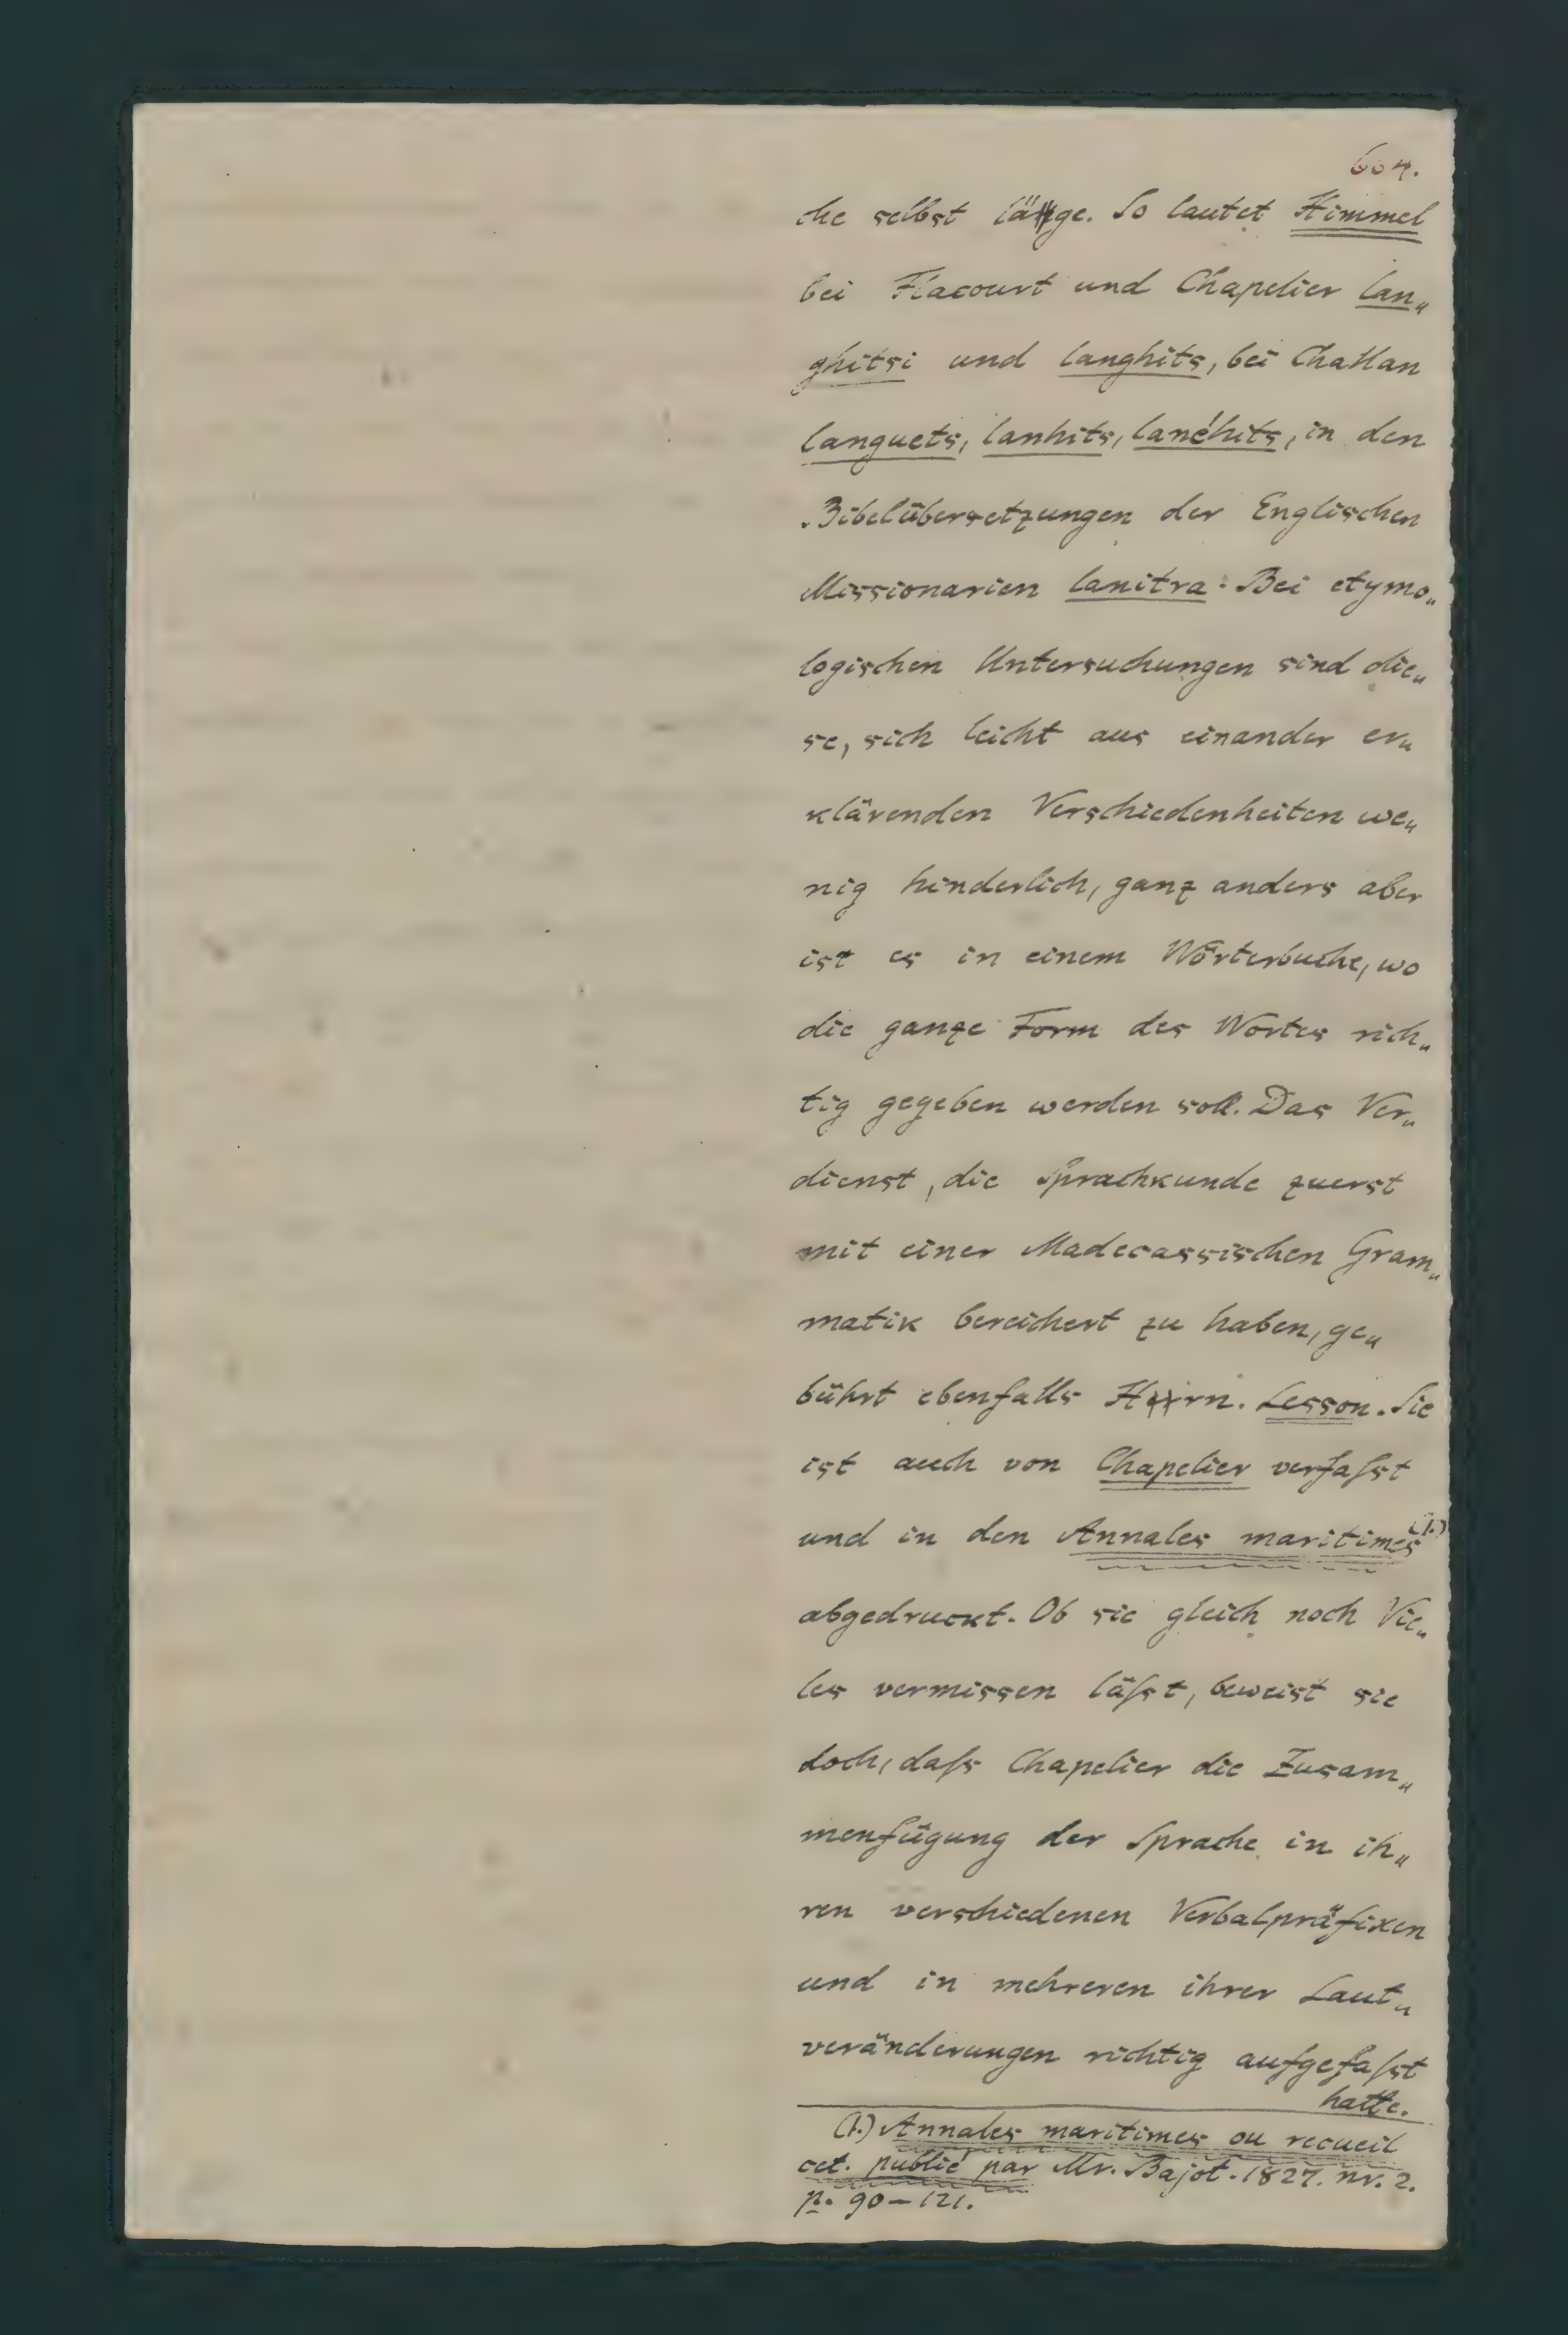 604.
che selbst läge. So lautet Himmel
bei Flacourt und Chapelier lan„
ghitsi und langhits, bei Challan
languets, lanhits, lanéhits, in den
Bibelübersetzungen der Englischen
Missionarien lanitra. Bei etymo„
logischen Untersuchungen sind die„
se, sich leicht aus einander er„
klärenden Verschiedenheiten we„
nig hinderlich, ganz anders aber
ist es in einem Wörterbuche, wo
die ganze Form des Wortes rich„
tig gegeben werden soll. Das Ver„
dienst, die Sprachkunde zuerst
mit einer Madecassischen Gram„
matik bereichert zu haben, ge„
bührt ebenfalls Hrrn. Lesson. Sie
ist auch von Chapelier verfaſst
und in den Annales maritimes (1.)
abgedruckt. Ob sie gleich noch Vie„
les vermissen läſst, beweist sie
doch, daſs Chapelier die Zusam„
menfügung der Sprache in ih„
ren verschiedenen Verbalpräfixen
und in mehreren ihrer Laut„
veränderungen richtig aufgefaſst
hatte.
(1.) Annales maritimes ou recueil
cet. publié par Mr. Bajot. 1827. nr. 2.
p. 90–121.